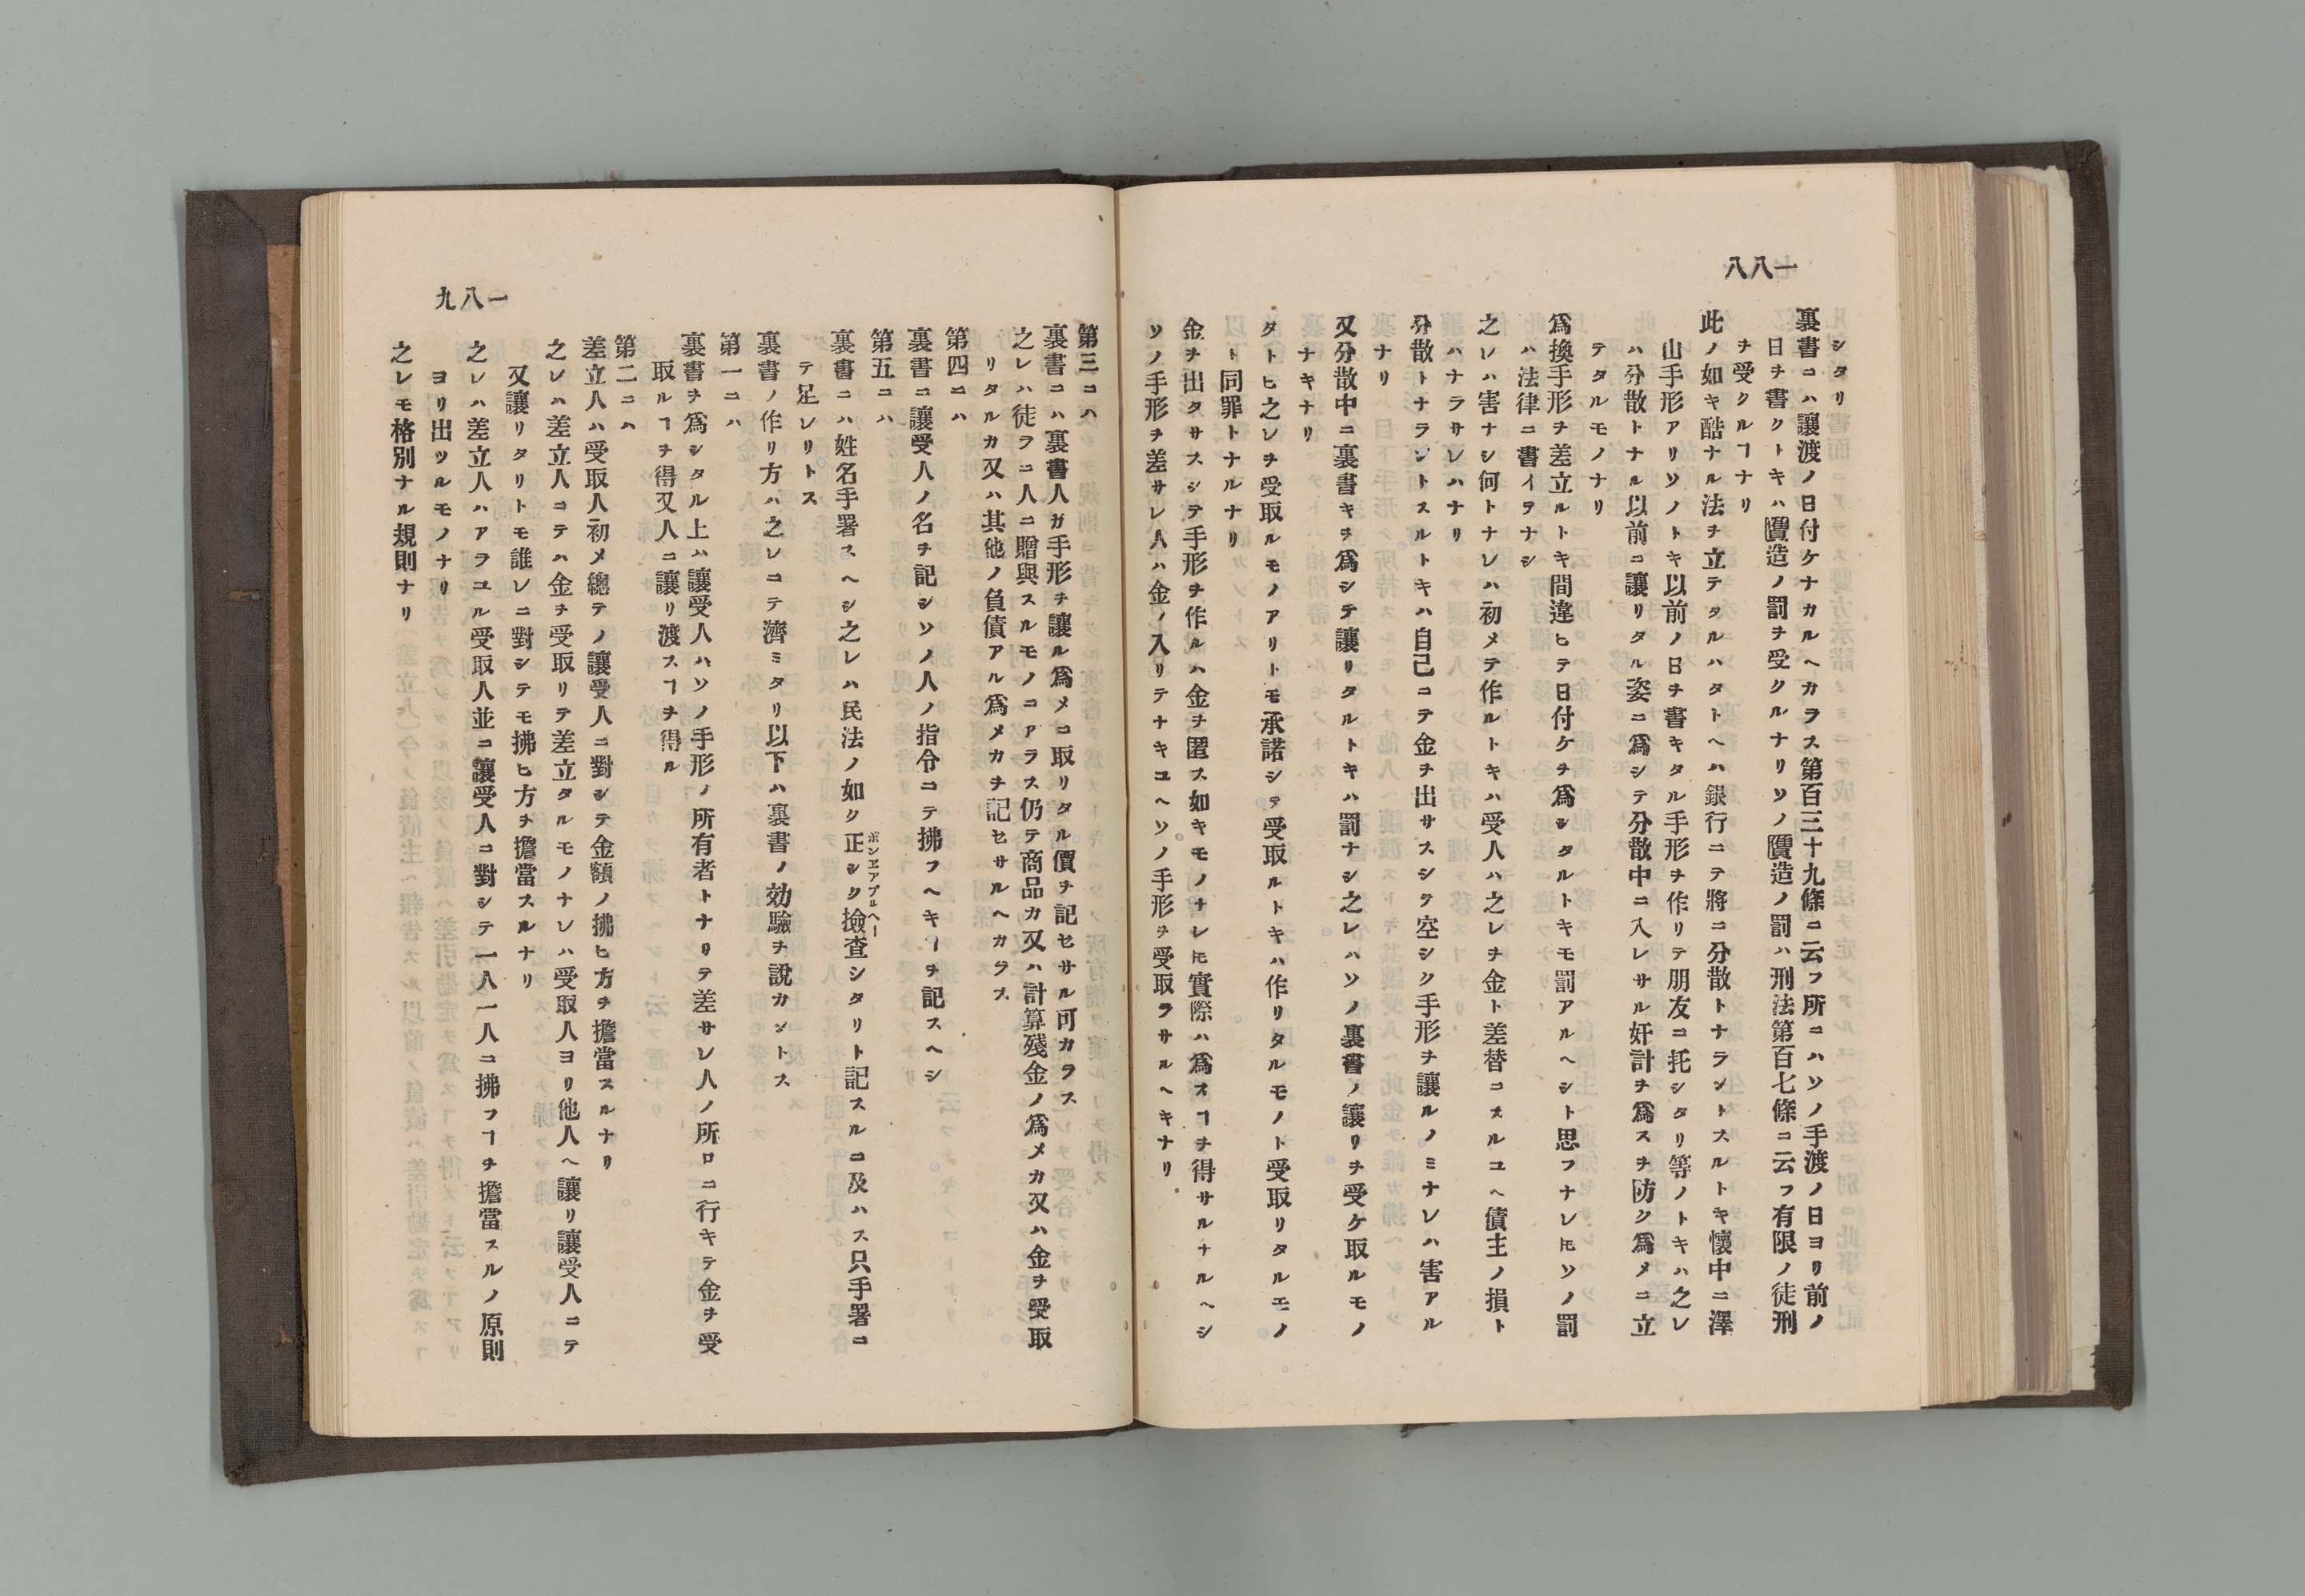 一八八
シタリ
裏書ニハ讓渡ノ日付ケナカルヘカラス第百三十九條ニ云フ所ニハソノ手渡ノ日ヨリ前ノ
日ヲ書クトキハ贋造ノ罰ヲ受クルナリソノ贋造ノ罰ハ刑法第百七條ニ云フ有限ノ徒刑
ヲ受クルヿナリ
此ノ如キ酷ナル法ヲ立テタルハタトヘハ銀行ニテ將ニ分散トナラントスルトキ懷中ニ澤
山手形アリソノトキ以前ノ日ヲ書キタル手形ヲ作リテ朋友ニ托シタリ等ノトキハ之レ
ハ分散トナル以前ニ讓リタル姿ニ爲シテ分散中ニ入レサル奸計ヲ爲スヲ防ク爲メニ立
テタルモノナリ
爲換手形ヲ差立ルトキ間違ヒテ日付ケヲ爲シタルトキモ罰アルヘシト思フナレ𪜈ソノ罰
ハ法律ニ書イテナシ
之レハ害ナシ何トナレハ初メテ作ルトキハ受人ハ之レヲ金ト差替ニスルユヘ債主ノ損ト
ハナラサレハナリ
分散トナラントスルトキハ自己ニテ金ヲ出サスシテ空シク手形ヲ讓ルノミナレハ害アル
ナリ
又分散中ニ裏書キヲ爲シテ讓リタルトキハ罰ナシ之レハソノ裏書ノ讓リヲ受ケ取ルモノ
ナキナリ
タトヒ之レヲ受取ルモノアリトモ承諾シテ受取ルトキハ作リタルモノト受取リタルモノ
ト同罪トナルナリ
金ヲ出タサスシテ手形ヲ作ルハ金ヲ匿ス如キモノナレ𪜈實際ハ爲スヿヲ得サルナルヘシ
ソノ手形ヲ差サレ人ハ金ノ入リテナキユヘソノ手形ヲ受取ラサルヘキナリ
一八九
第三ニハ
裏書ニハ裏書人ガ手形ヲ讓ル爲メニ取リタル價ヲ記セサル可カラス
之レハ徒ラニ人ニ贈與スルモノニアラス仍テ商品カ又ハ計算殘金ノ爲メカ又ハ金ヲ受取
リタルカ又ハ其他ノ負債アル爲メカヲ記セサルヘカラス
第四ニハ
裏書ニ讓受人ノ名ヲ記シソノ人ノ指令ニテ拂フヘキヿヲ記スヘシ
第五ニハ
裏書ニハ姓名手署スヘシ之レハ民法ノ如ク正シク撿査シタリト記スルニ及ハス只手署ニ
ボンヱアプルヘー
テ足レリトス
裏書ノ作リ方ハ之レニテ濟ミタリ以下ハ裏書ノ効驗ヲ說カントス
第一ニハ
裏書ヲ爲シタル上ハ讓受人ハソノ手形ノ所有者トナリテ差サレ人ノ所ロニ行キテ金ヲ受
取ルヿヲ得又人ニ讓リ渡スヿヲ得ル
第二ニハ
差立人ハ受取人初メ總テノ讓受人ニ對シテ金額ノ拂ヒ方ヲ擔當スルナリ
之レハ差立人ニテハ金ヲ受取リテ差立タルモノナレハ受取人ヨリ他人ヘ讓リ讓受人ニテ
又讓リタリトモ誰レニ對シテモ拂ヒ方ヲ擔當スルナリ
之レハ差立人ハアラユル受取人並ニ讓受人ニ對シテ一人一人ニ拂フヿヲ擔當スルノ原則
ヨリ出ツルモノナリ
之レモ格別ナル規則ナリ